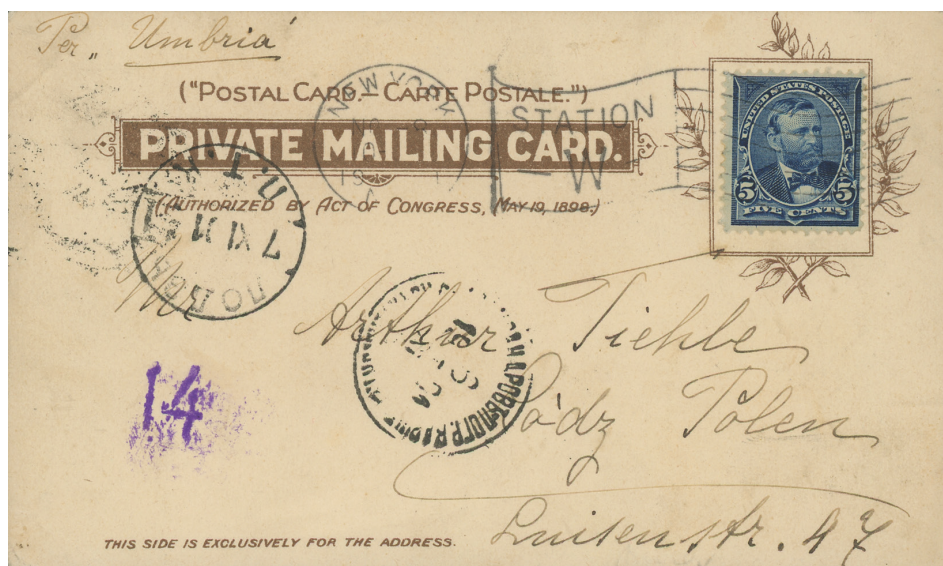 Per „ Umbria
("Postal Card.— Carte Postale.")
PRIVATE MAILING CARD.
(Authorized by Act of Congress, May 19, 1898.)
NEW YORK
STATION
W
UNITED STATES POSTAGE
5 5
FIVE CENTS
7 XI
14
Arthur Tichle
Łódz Polen
Luisenstr. 47
THIS SIDE IS EXCLUSIVELY FOR THE ADDRESS.